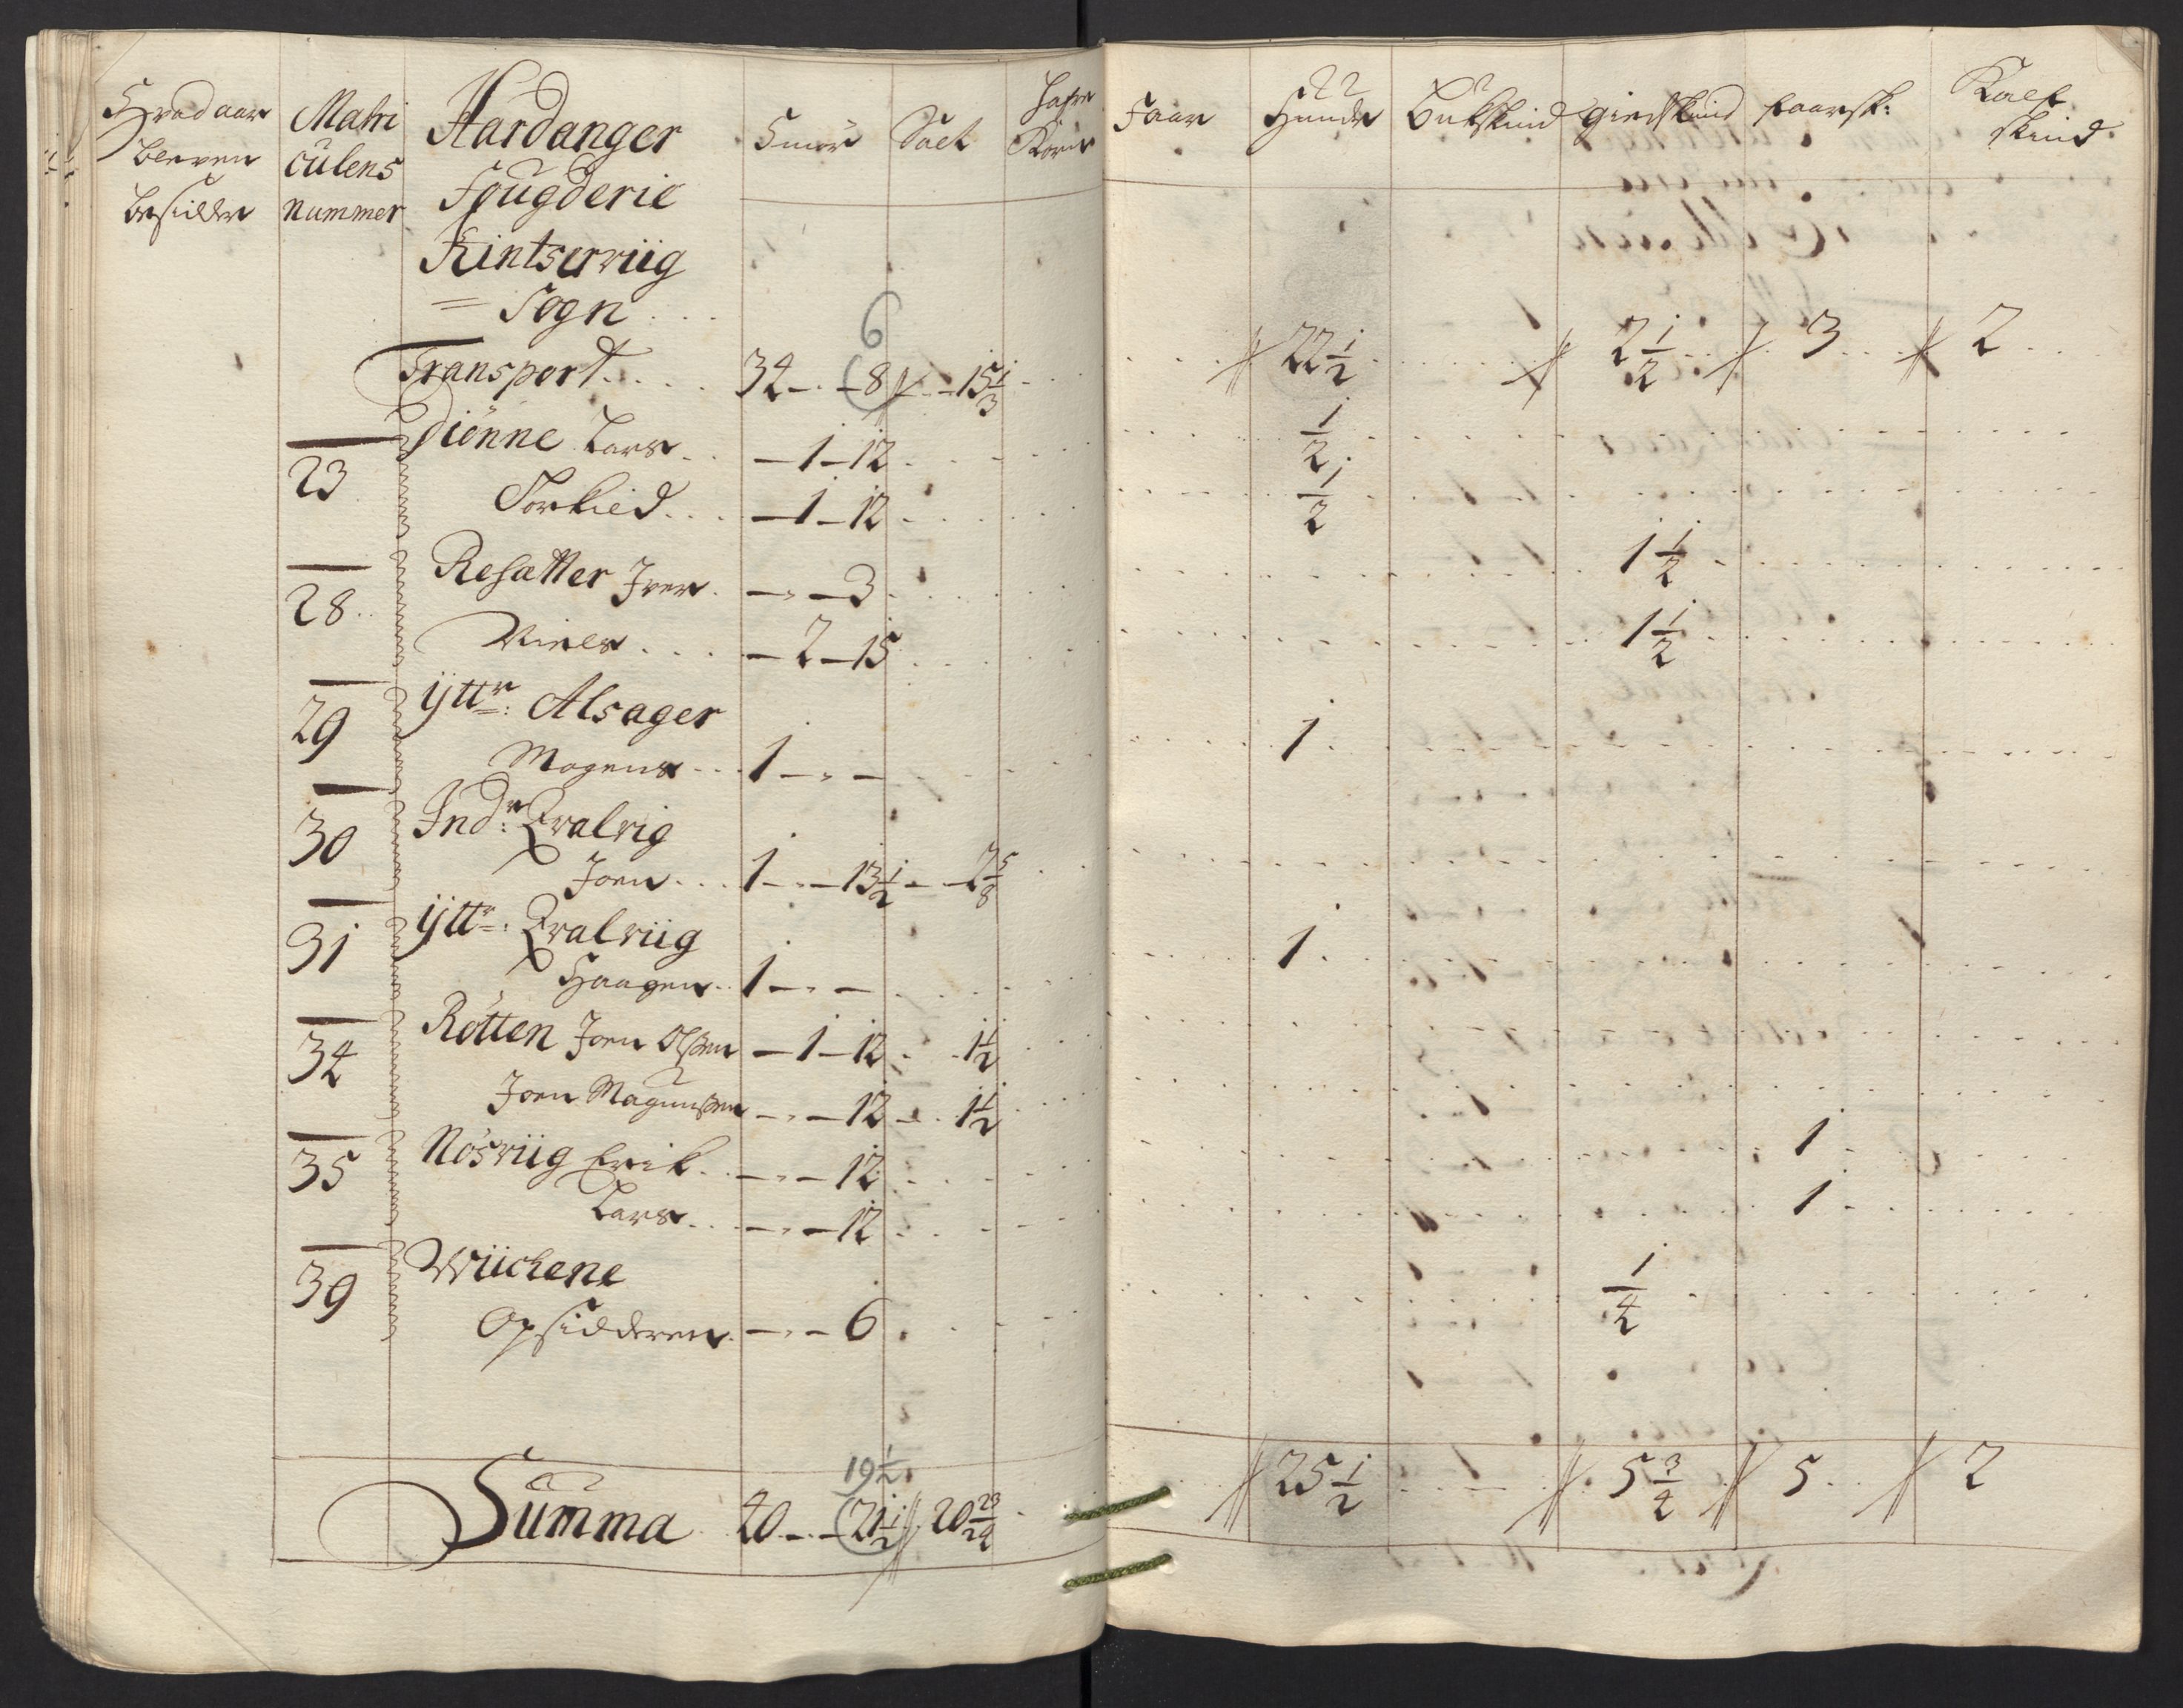 Hvad aar
bleven
besidder
Matri
culens
nummer
Hardanger
Fougderie
Kintserviig
= Sogn
Smör Salt
Hafre
Korn
Faar Huude Bukskind giedskind faarsk:
Kalf
skind
6
Transport 34 - - 8 15 1/3 22 1/2 2 1/2 3 2
23 Diönne Lars - 1 - 12 1/2
Torkied - 1 - 12 1/2
28 Resatter Iver - - 3 1 1/2
Niels - 2 - 15 1 1/2
29 Ÿttr: Alsager
Mogens 1 - - 1
30 Indr: Qvalvig
Joen 1 - - 13 1/2 - 2 5/8
31 Ÿttr: Qvalviig
Haagen 1 - - 1
34 Rötten Joen Olssen - 1 - 12 1 1/2
Joen Magnussen - - 12 1 1/2
35 Nösviig Erik - - 12 1
Lars - - 12 1
39 Wiichene
Opsidderen - - 6 1/4
19 1/2
Summa 40 - - 21 1/2 20 23/24 25 1/2 5 3/4 5 2